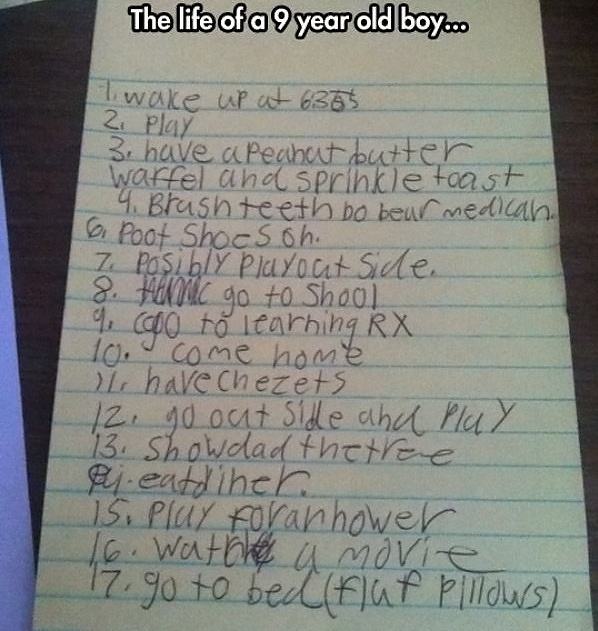 The life of a 9 year old boy...
1. wake up at 6355
2. Play
3. have a peanut butter
waffel and sprinkle toast
4. Brush teeth do beur medican.
6. Poot Shoes oh.
7. Posibly Playout Side.
8. go to Shool
9. go to learning RX
10. come home
11. have chezets
12. go out Side and Play
13. Showdad thetree
eatdiner.
15. Play foranhower
16. Watch a movie
17. go to bed (fluf Pillows)